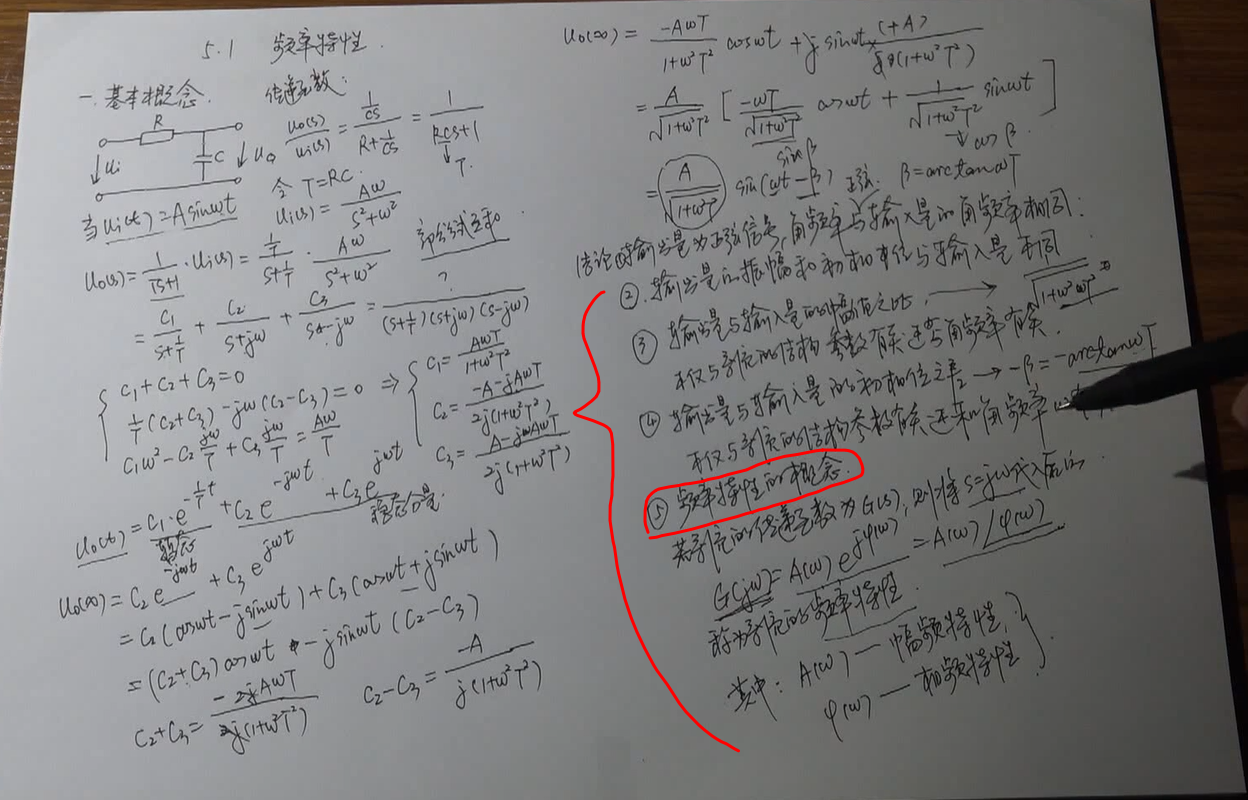 5.1 频率特性.
一.基本概念. 传递函数:
R
C
Ui
Uo
Uo(s)/Ui(s) = (1/CS)/(R+1/CS) = 1/(RCS+1)
T.
令 T=RC.
当Ui(t)=Asinωt
Ui(s)= Aω/(S²+ω²)
Uo(s)= 1/(TS+1) · Ui(s)= (1/T)/(S+1/T) · Aω/(S²+ω²) 部分分式求和.
= C1/(S+1/T) + C2/(S+jω) + C3/(S-jω) = ?/((S+1/T)(S+jω)(S-jω))
C1+C2+C3=0
1/T(C2+C3)-jω(C2-C3)=0 ⇒
C1ω²-C2 jω/T + C3 jω/T = Aω/T
C1= AωT/(1+ω²T²)
C2= (-A-jAωT)/(2j(1+ω²T²))
C3= (A-jAωT)/(2j(1+ω²T²))
Uo(t)= C1·e^(-1/T t) + C2e^(-jωt) + C3e^(jωt)
暂态 稳态分量.
Uo(∞)= C2e^(-jωt) + C3e^(jωt)
= C2(cosωt-jsinωt)+C3(cosωt+jsinωt)
=(C2+C3)cosωt - jsinωt (C2-C3)
C2+C3= -2jAωT/(2j(1+ω²T²)) C2-C3= -A/(j(1+ω²T²))
Uo(∞)= -AωT/(1+ω²T²) cosωt + jsinωt × (+A)/(j(1+ω²T²))
= A/√(1+ω²T²) [ -ωT/√(1+ω²T²) cosωt + 1/√(1+ω²T²) sinωt ]
sinβ → cosβ.
= A/√(1+ω²T²) sin(ωt-β) 正弦. β=arctanωT
结论①输出量为正弦信号,角频率与输入量的角频率相同:
②.输出量的振幅和初相位与输入量不同
③ 输出量与输入量的幅值之比, → 1/√(1+ω²T²)
不仅与系统的结构参数有关还与角频率有关.
④ 输出量与输入量的初相位之差 → -β=-arctanωT
不仅与系统的结构参数有关还和角频率
⑤ 频率特性的概念.
若系统的传递函数为G(s),则将s=jω代入后的
G(jω)=A(ω)e^(jφ(ω))=A(ω)∠φ(ω)
称为系统的频率特性.
其中: A(ω)—幅频特性,
φ(ω)—相频特性